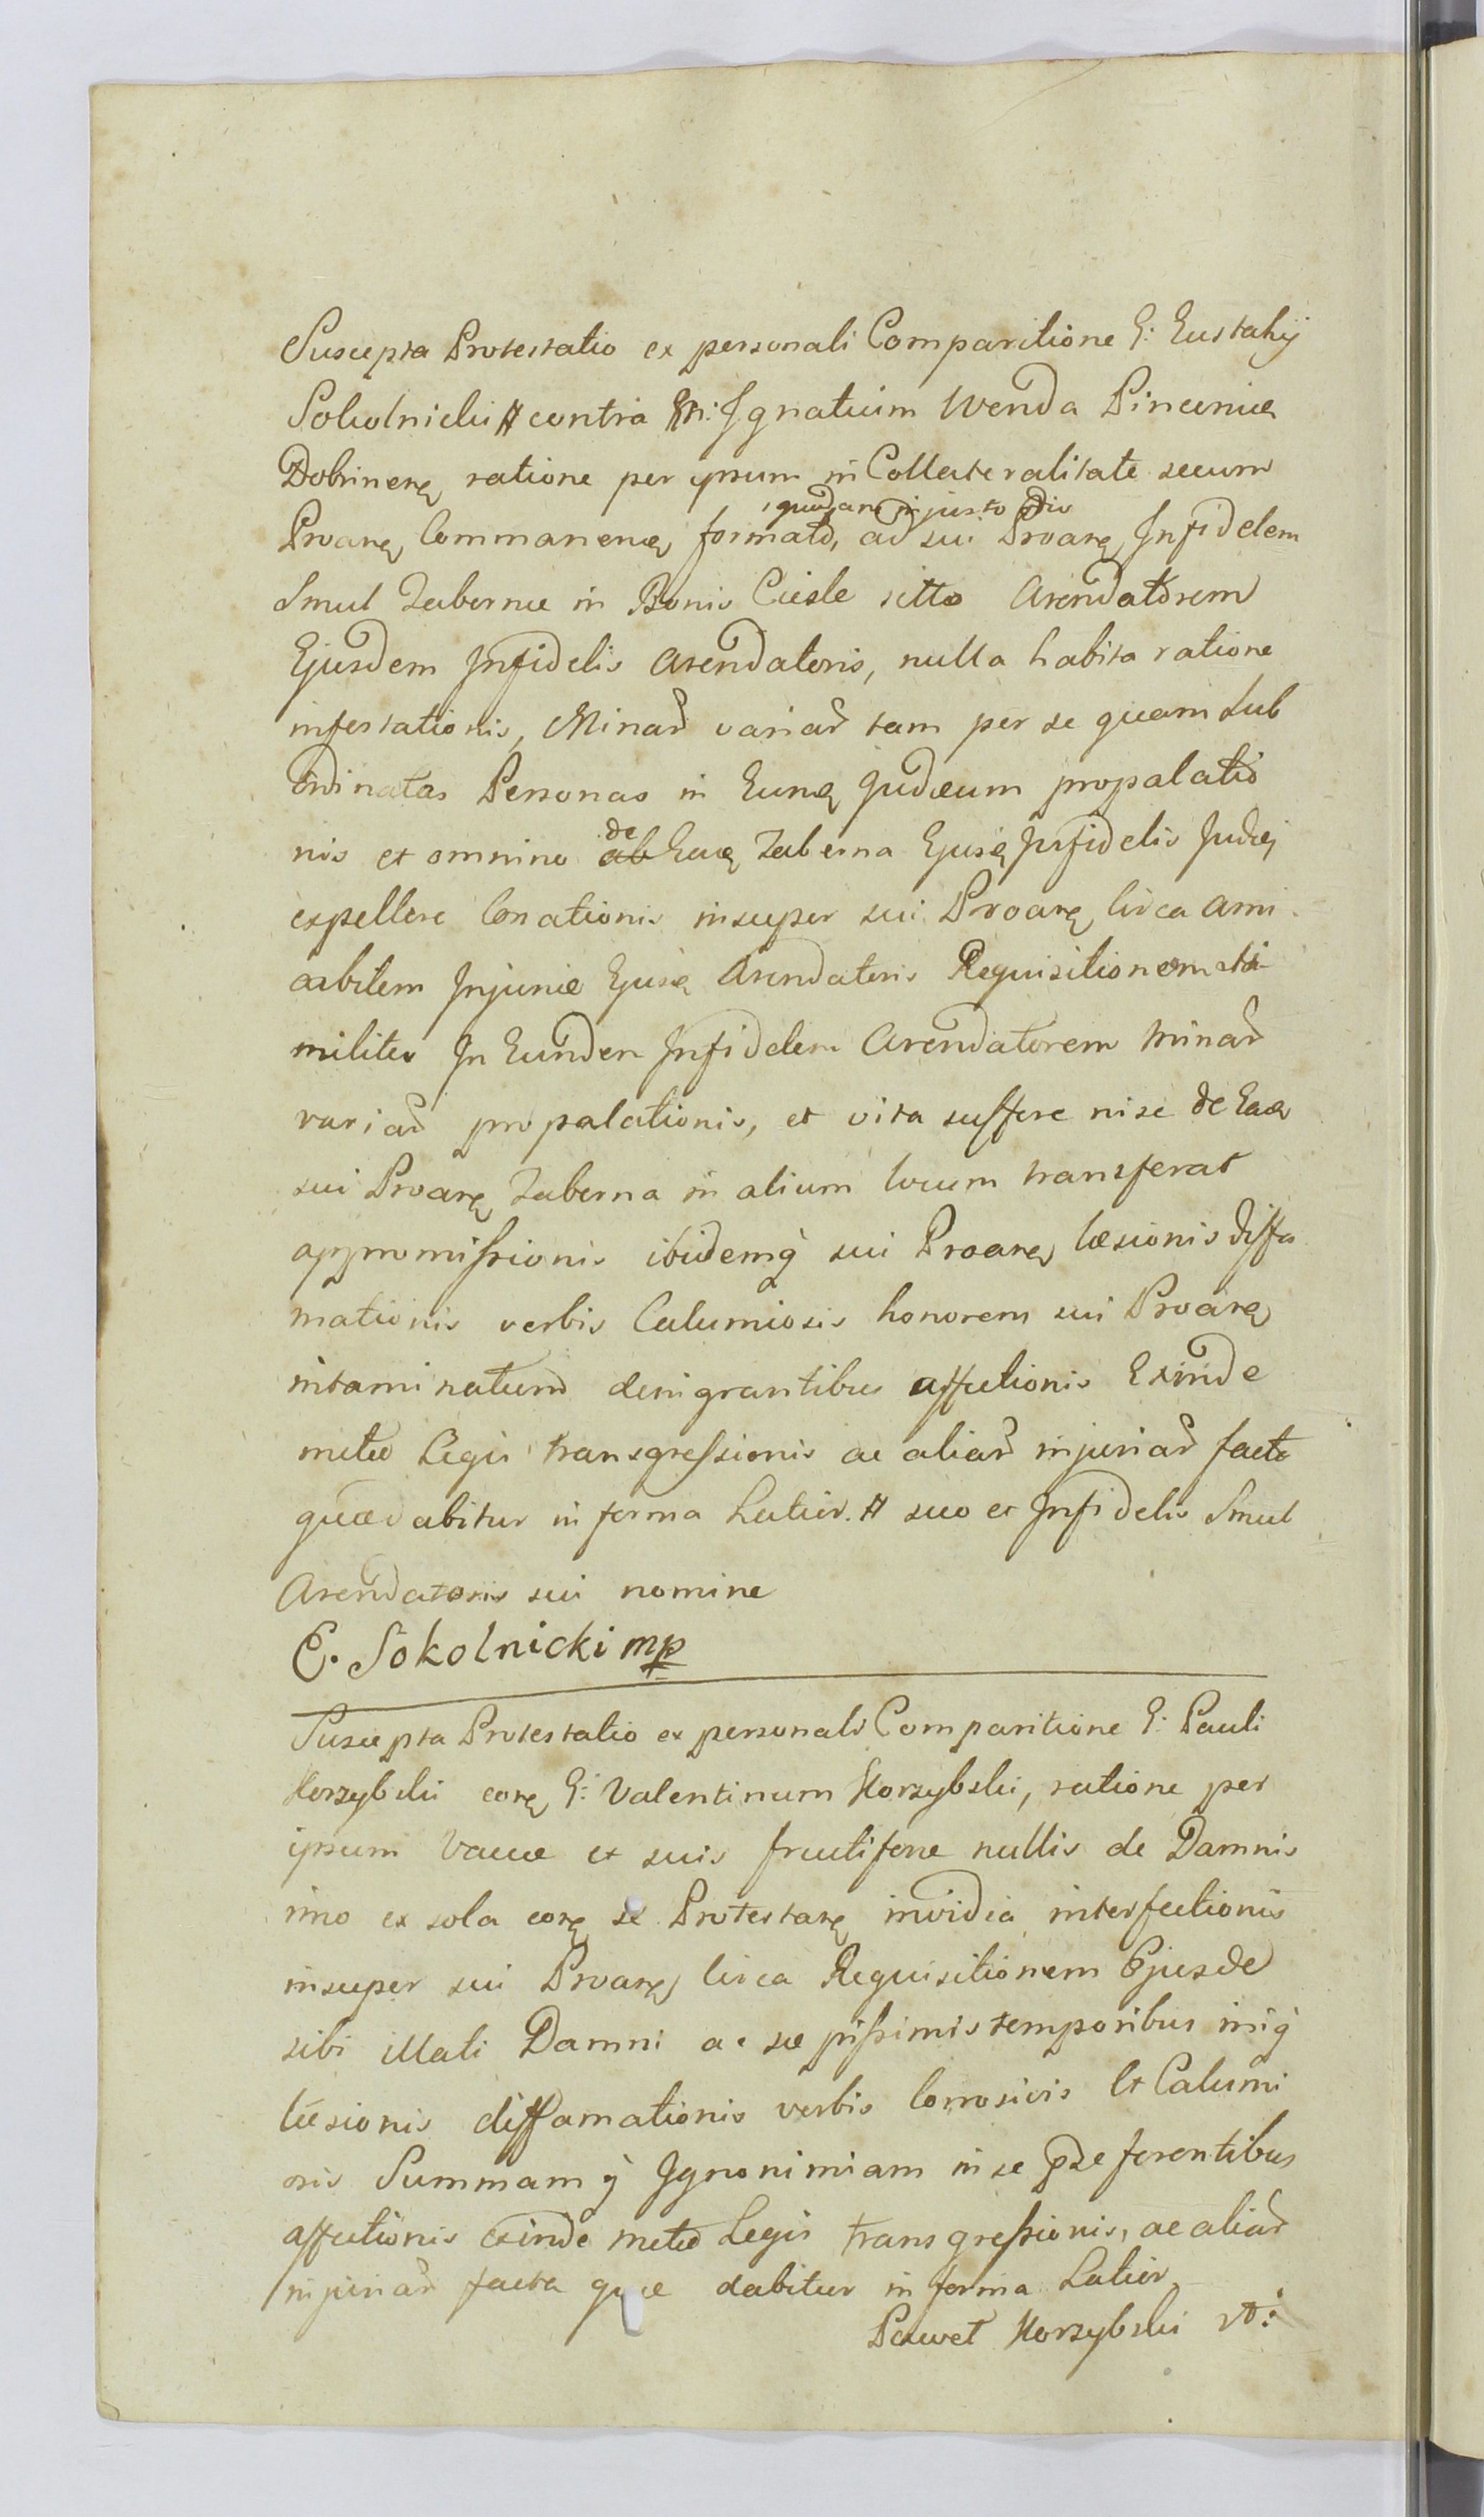 Suscepta Protestatio ex personali Comparitione G: Eustahij
Sokolnicki # contra M: Ignatium Wenda Pincernæ
Dobrinenę ratione per ipsum in Collateralitate secum
, quodam injusto odio
Proanę Commanenę formato, ad sui Proanę Infidelem
Smul Tabernæ in Bonis Ciesle sitto Arendatorem
Ejusdem Infidelis Arendatoris, nulla habita ratione
infestationis, Minar̃ variar̃ tam per se quam sub
ordinatas Personas in Eunę Judæum propalatio
nis et omnino de ab Eaę Taberna Ejusę Infidelis Judæj
expellere Conationis insuper sui Proanę circa ami
cabilem Injuriæ Ejusę Arendatoris Requisitionem si
militer In Eunden Infidelem Arendatorem minar̃
variar̃ propalationis, et vita suffere nise de Eaę
sui Proanę Taberna in alium locum transferat
appromissionis ibidemq̃ sui Proanę læsionis diffa
mationis verbis Calumiosis honorem sui Proanę
intaminatum denigrantibus affectionis Exinde
metu Legis transgressionis ac aliar̃ injuriar̃ facto
quæ dabitur in forma Latior. # suo et Infidelis Smul
Arendatoris sui nomine
E. Sokolnicki mp
Suscepta Protestatio ex personali Comparitione G: Pauli
Korzybski conę G: Valentinum Korzybski, ratione per
ipsum Vaccæ et suis fructiferæ nullis de Damnis
imo ex sola conę se Protestanę invidia interfectionis
insuper sui Proanę circa Requisitionem Ejusde
sibi illati Damni ac sæpissimis temporibus imiq̃
læsionis diffamationis verbis Corrosivis et Calumi
osis Summamq̃ Ignonimiam in se præferentibus
affectionis exinde metu Legis transgressionis, ac aliar̃
injuriar̃ facta quæ dabitur in forma Latior
Paweł Korzybski